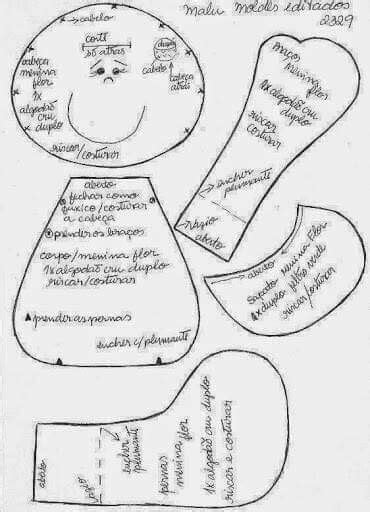 Malu moldes editados
2329
cabelo
corte
só atrás
cabelo
cabeça
atrás
cabeça
menina
flor
1x
algodão
cru
duplo
riscar/costurar
braços
menina flor
1x algodão cru
duplo
riscar
costurar
encher
plumante
vazio
aberto
aberto
fechar como
fuxico/costurar
a cabeça
prender os braços
corpo/menina flor
1x algodão cru duplo
riscar/costurar
prender as pernas
encher c/plumante
aberto
sapato menina flor
1x duplo feltro verde
riscar/costurar
aberto
vazio
encher
plumante
pernas
menina flor
1x algodão cru duplo
riscar e costurar